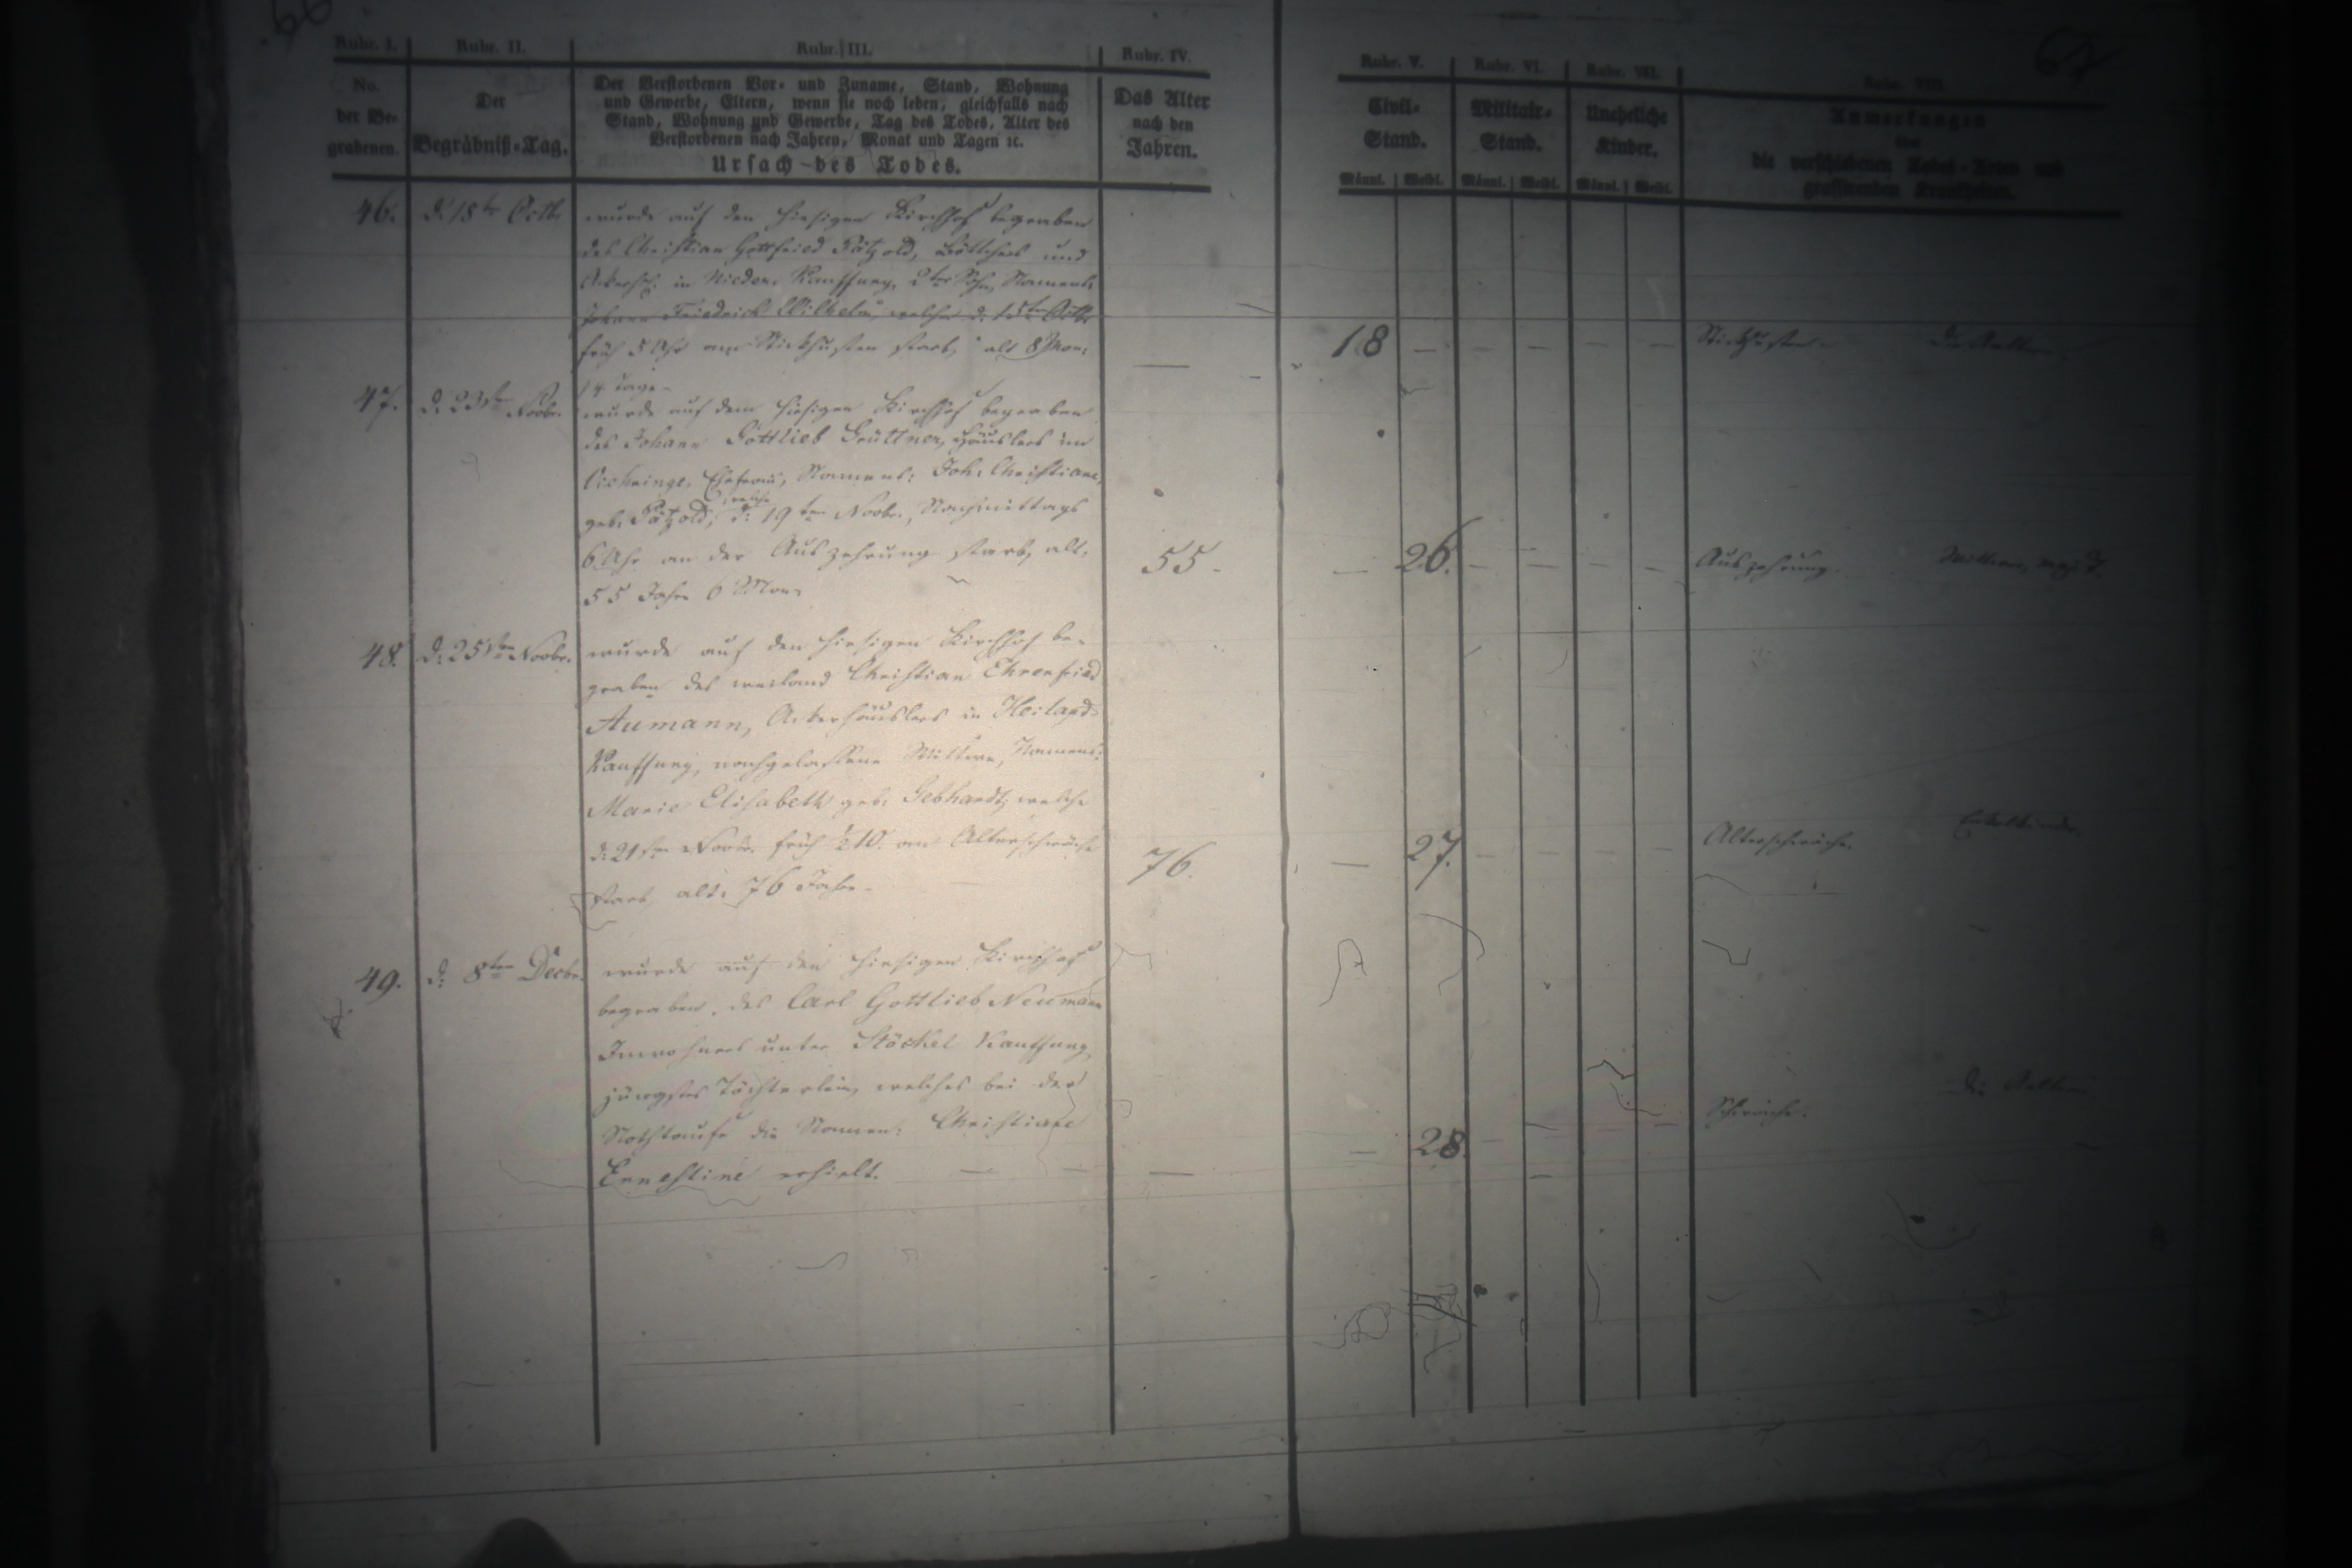 66
Rubr. I.
Rubr. II.
Rubr. III.
Rubr. IV.
No.
der Be-
grabenen.
Der
Begräbniß-Tag.
Der Verstorbenen Vor- und Zuname, Stand, Wohnung
und Gewerbe, Eltern, wenn sie noch leben, gleichfalls nach
Stand, Wohnung und Gewerbe, Tag des Todes, Alter des
Verstorbenen nach Jahren, Monat und Tagen ꝛc.
Ursach des Todes.
Das Alter
nach den
Jahren.
46.
d: 18ten Octb.
wurde auf den hiesigen Kirchhof begraben
des Christian Gottfried Pätzold, Böttchers und
in Nieder Kauffung, 2ter Sohn, Namens:
Johann Friedrich Wilhelm, welcher d. 15ten Octb.
früh 5 Uhr am Stickhusten starb, alt 8 Mon:
14 Tage.
47.
d. 23sten Novbr.
wurde auf dem hiesigen Kirchhof begraben
des Johann Gottlieb Grüttner, Häuslers im
Ehefrau, Namens: Joh. Christiane,
geb: Pätzold, welche d: 19ten Novbr., Nachmittags
6 Uhr an der Auszehrung starb, alt:
55 Jahr 6 Mon.
55.
48.
d: 25sten Novbr.
wurde auf den hiesigen Kirchhof be-
graben des weiland Christian Ehrenfried
Aumann, Ackerhäuslers in Heiland-
Kauffung, nachgelassene Wittwe, Namens:
Marie Elisabeth geb: Gebhardt, welche
d: 21sten Novbr. früh ½10. an Altersschwäche
starb alt: 76 Jahr.
76.
49.
d: 8ten Decbr.
wurde auf den hiesigen Kirchhof
begraben, des Carl Gottlieb Neumann
Inwohners unter Stöckel Kauffung
jüngstes Töchterlein, welches bei der
Nothtaufe die Namen: Christiane
Ernestine erhielt.
67
Rubr. V.
Rubr. VI.
Rubr. VII.
Rubr. VIII.
Civil-
Stand.
Militair-
Stand.
Uneheliche
Kinder.
Anmerkungen
über
die verschiedenen Todes-Arten und
grassirenden Krankheiten.
Männl. Weibl. Männl. Weibl. Männl. Weibl.
18 Stickhusten. Die Aeltern
26. Auszehrung.
27. Altersschwäche.
28. Schwäche. Die Aeltern